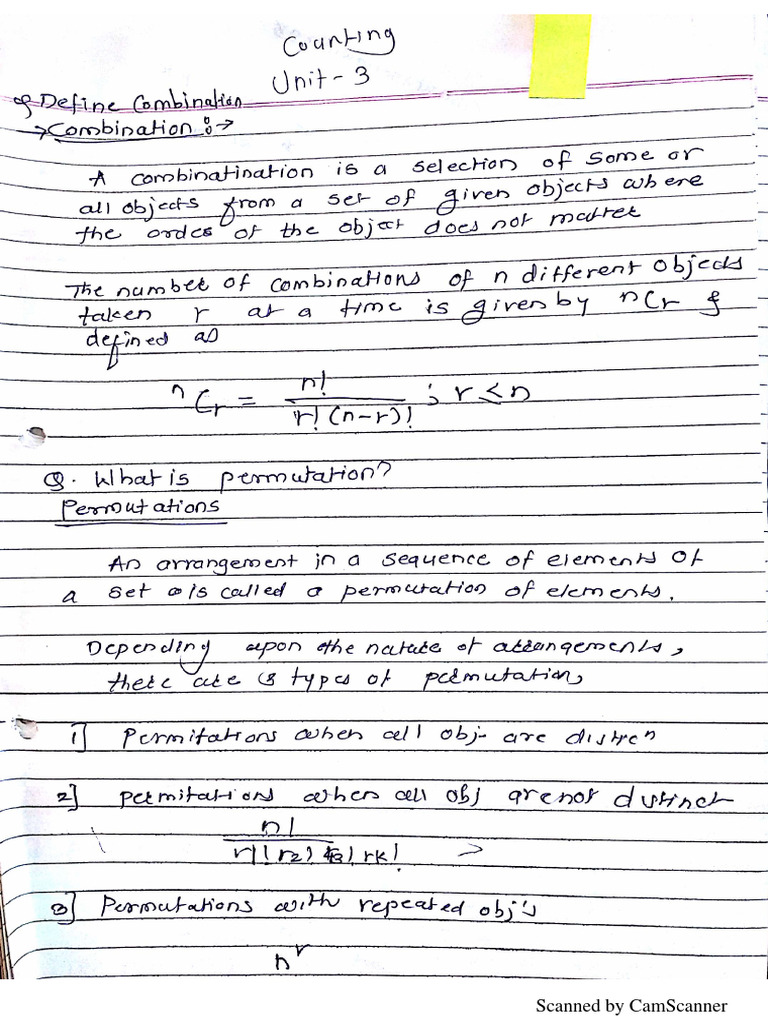 Counting
Unit - 3
Q Define Combination
→ Combination :→
A combinatination is a selection of some or
all objects from a set of given objects where
the order of the object does not matter
The number of combinations of n different objects
taken r at a time is given by nCr &
defined as
nCr = n! / r! (n-r)! ; r ≤ n
Q. What is permutation?
Permutations
An arrangement in a sequence of elements of
a set is called a permutation of elements.
Depending upon the nature of arrangements,
there are 3 types of permutation,
1] Permitations when all obj- are distinct
2] Permitations when all obj are not distinct
n! / r1! r2! r3! rk!
3] Permutations with repeated obj's
n^r
Scanned by CamScanner